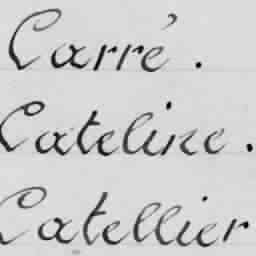 Carré.
Cateline.
Catellier